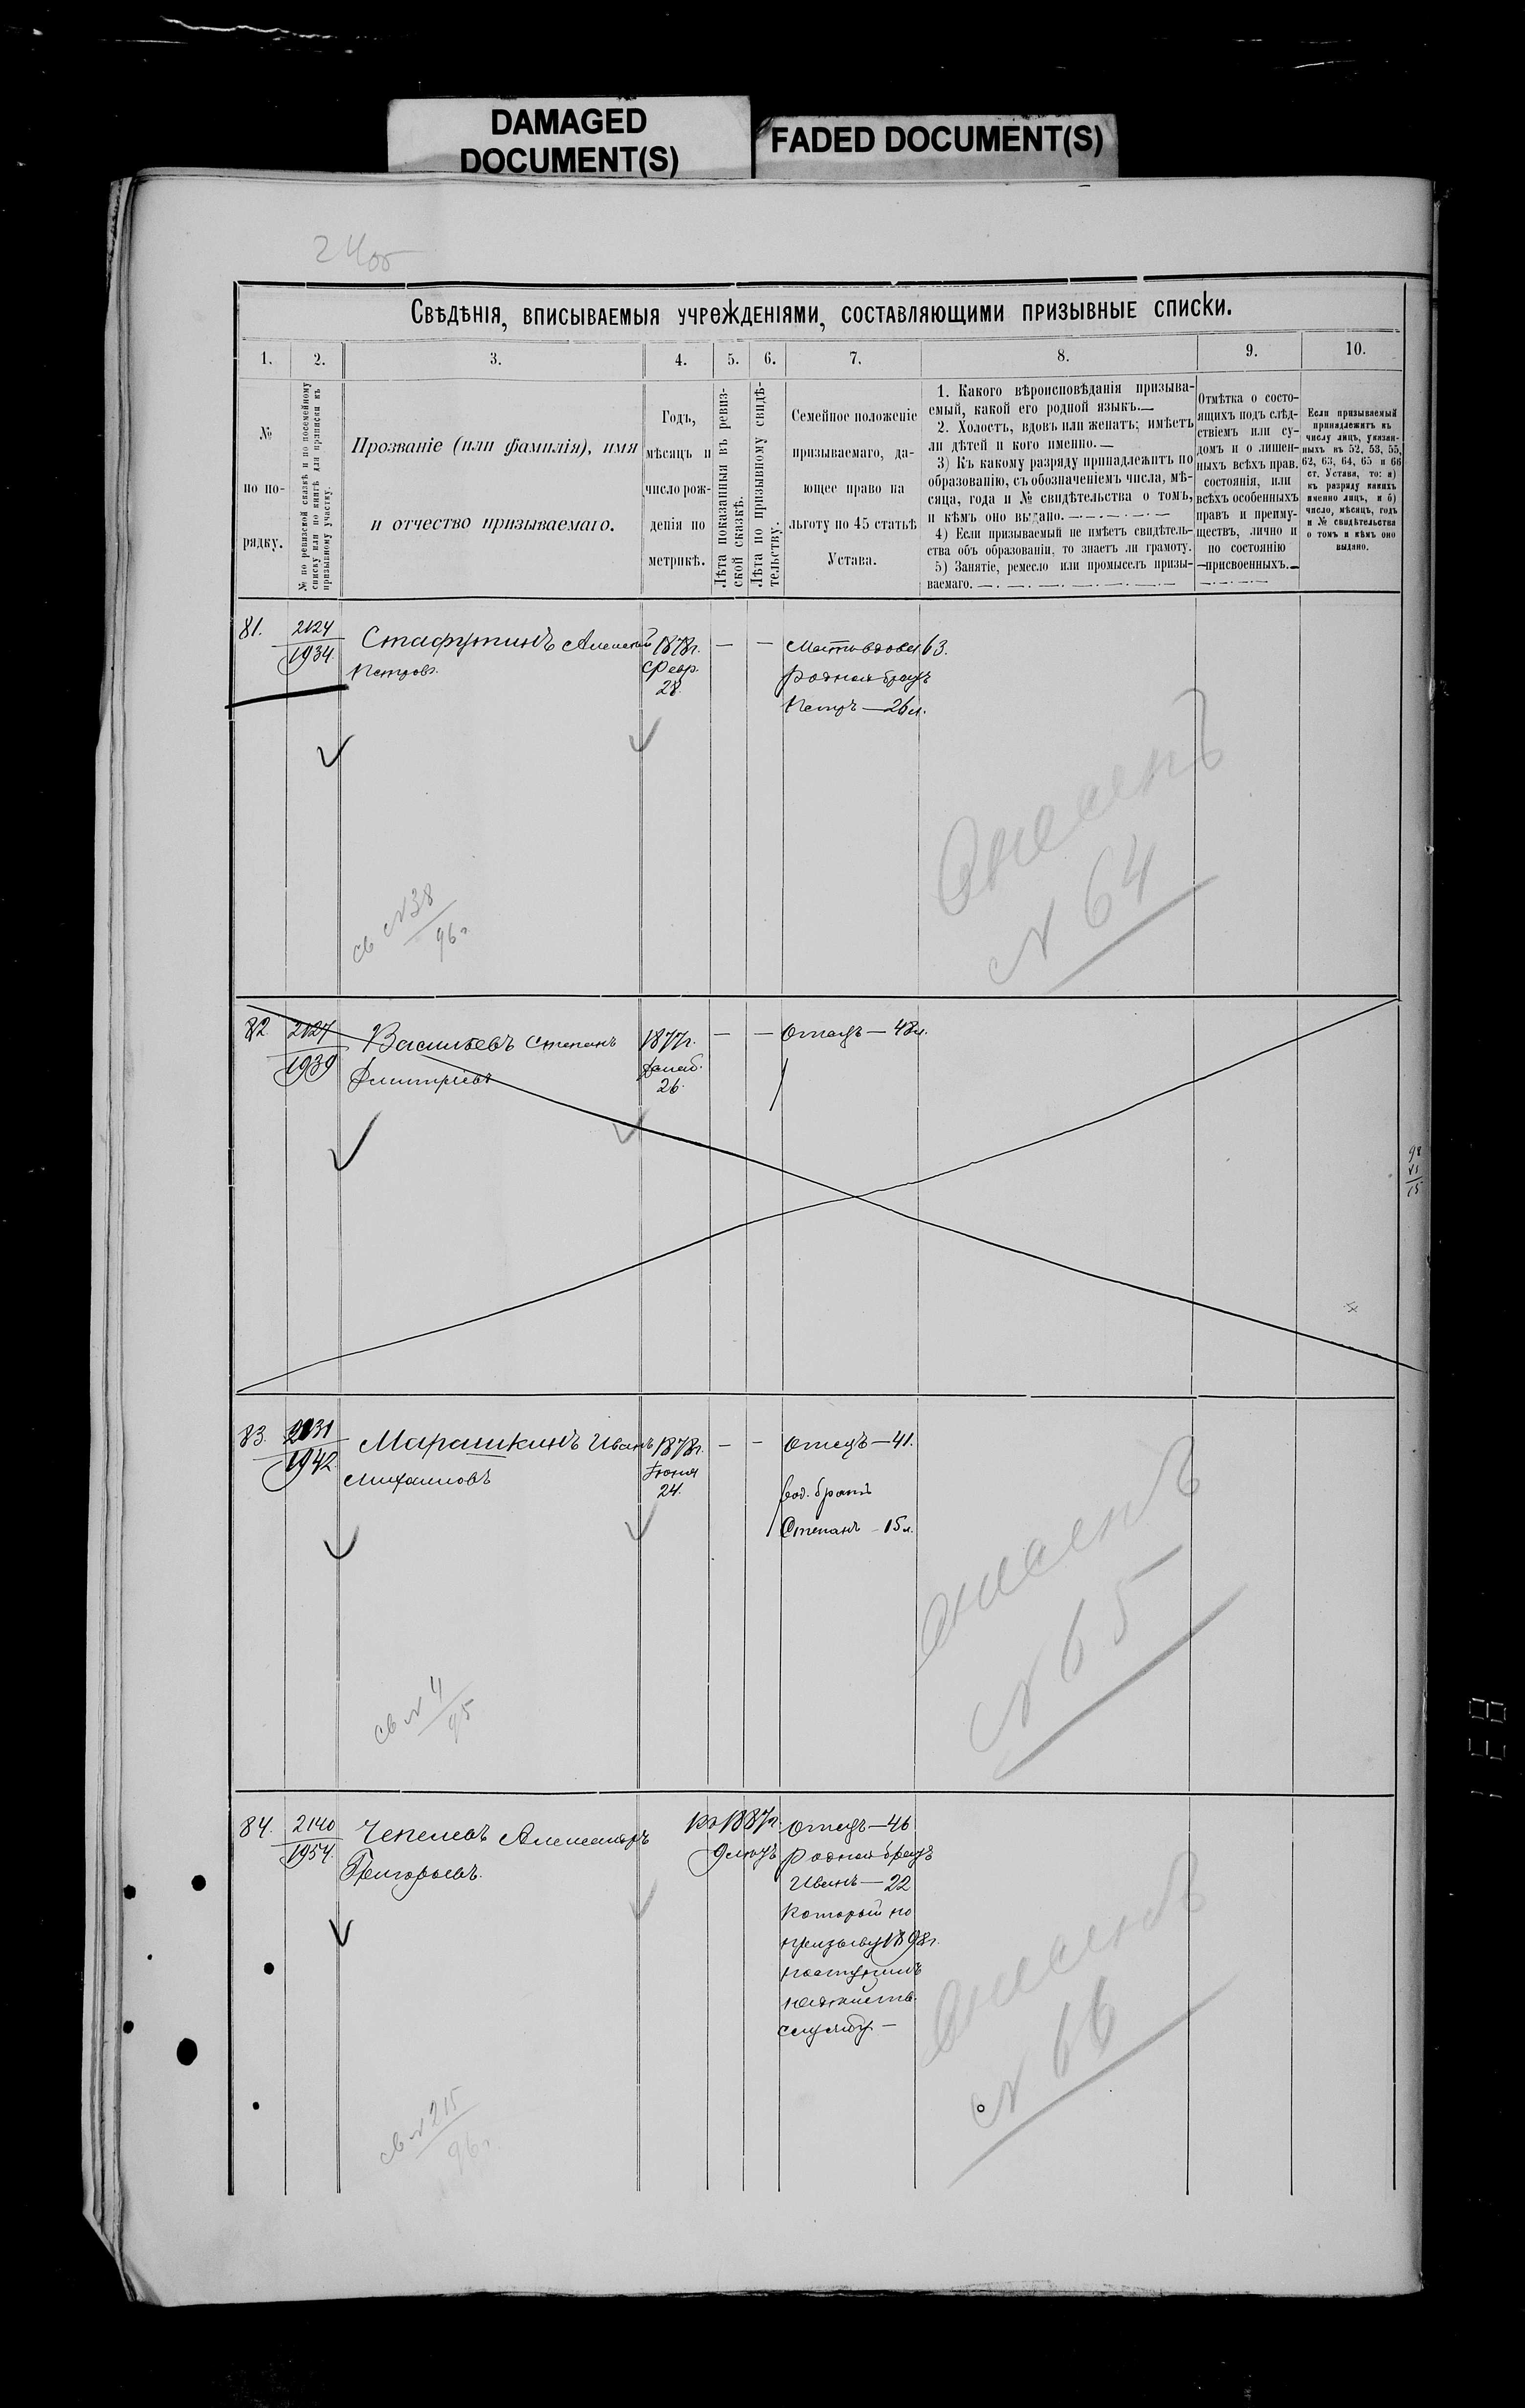 DAMAGED
DOCUMENT(S)
FADED DOCUMENT(S)
Свѣдѣнія, вписываемыя учрежденіями, составляющими призывные списки.
1.
2.
3.
4.
5.
6.
7.
8.
9.
10.
№
по по-
рядку.
№ по ревизской сказкѣ и по посемейному
списку или по книгѣ для приписки къ
призывному участку.
Прозваніе (или фамилія), имя
и отчество призываемаго.
Годъ,
мѣсяцъ и
число рож-
денія по
метрикѣ.
Лѣта показанныя въ ревиз-
ской сказкѣ.
Лѣта по призывному свидѣ-
тельству.
Семейное положеніе
призываемаго, да-
ющее право на
льготу по 45 статьѣ
Устава.
1. Какого вѣроисповѣданія призыва-
емый, какой его родной языкъ.
2. Холостъ, вдовъ или женатъ; имѣетъ
ли дѣтей и кого именно.
3) Къ какому разряду принадлежитъ по
образованію, съ обозначеніемъ числа, мѣ-
сяца, года и № свидѣтельства о томъ,
и кѣмъ оно выдано.
4) Если призываемый не имѣетъ свидѣтель-
ства объ образованіи, то знаетъ ли грамоту.
5) Занятіе, ремесло или промыселъ призы-
ваемаго.
Отмѣтка о состо-
ящихъ подъ слѣд-
ствіемъ или су-
домъ и о лишен-
ныхъ всѣхъ прав.
состоянія, или
всѣхъ особенныхъ
правъ и преиму-
ществъ, лично и
по состоянію
присвоенныхъ.
Если призываемый
принадлежитъ къ
числу лицъ, указан-
ныхъ въ 52, 53, 55,
62, 63, 64, 65 и 66
ст. Устава, то: а)
къ разряду какихъ
именно лицъ, и б)
число, мѣсяцъ, годъ
и № свидѣтельства
о томъ и кѣмъ оно
выдано.
81.
2124
1934
Стафутинъ Алексѣй
Петровъ.
1878г.
Февр.
28.
— —
Мать вдова 63.
Родной братъ
Петръ — 26 л.
св №38
96г
Внесенъ
№ 64
82.
2127
1939
Васильевъ Степанъ
Дмитріевъ
1877г.
Декаб.
26.
— —
Отецъ — 48 л.
98
VI
15
83.
2131
1942
Марашкинъ Иванъ
Михаиловъ
1878г.
Іюня
24.
— —
Отецъ — 41.
Род. братъ
Степанъ - 15 л.
св № 4
95
Внесенъ
№ 65
84.
2140
1954
Чепелевъ Александръ
Григорьевъ.
Отецъ — 46
Родной братъ
Иванъ — 22
который по
призыву 1898г.
поступилъ
службу —
св № 215
96г.
Внесенъ
№ 66